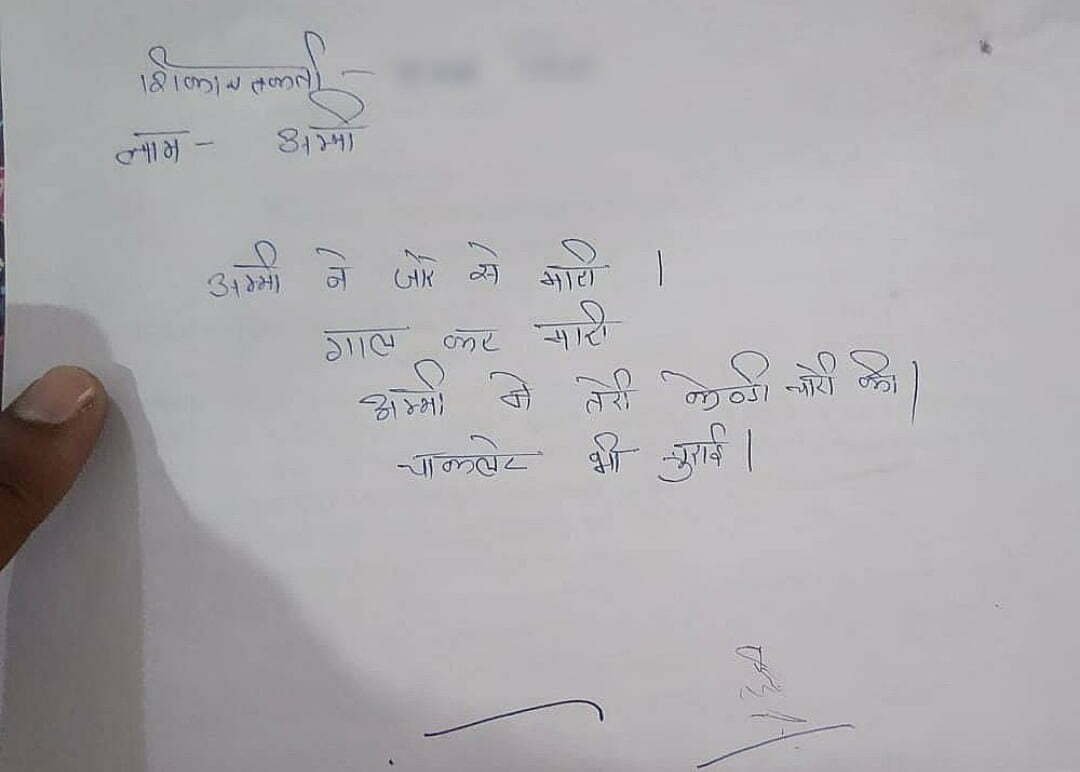 शिकायतकर्ता -
नाम - अम्मी
अम्मी ने जोर से मारी ।
गाल कर मारी
अम्मी ने तेरी केण्डी चोरी की।
चाकलेट भी चुराई।